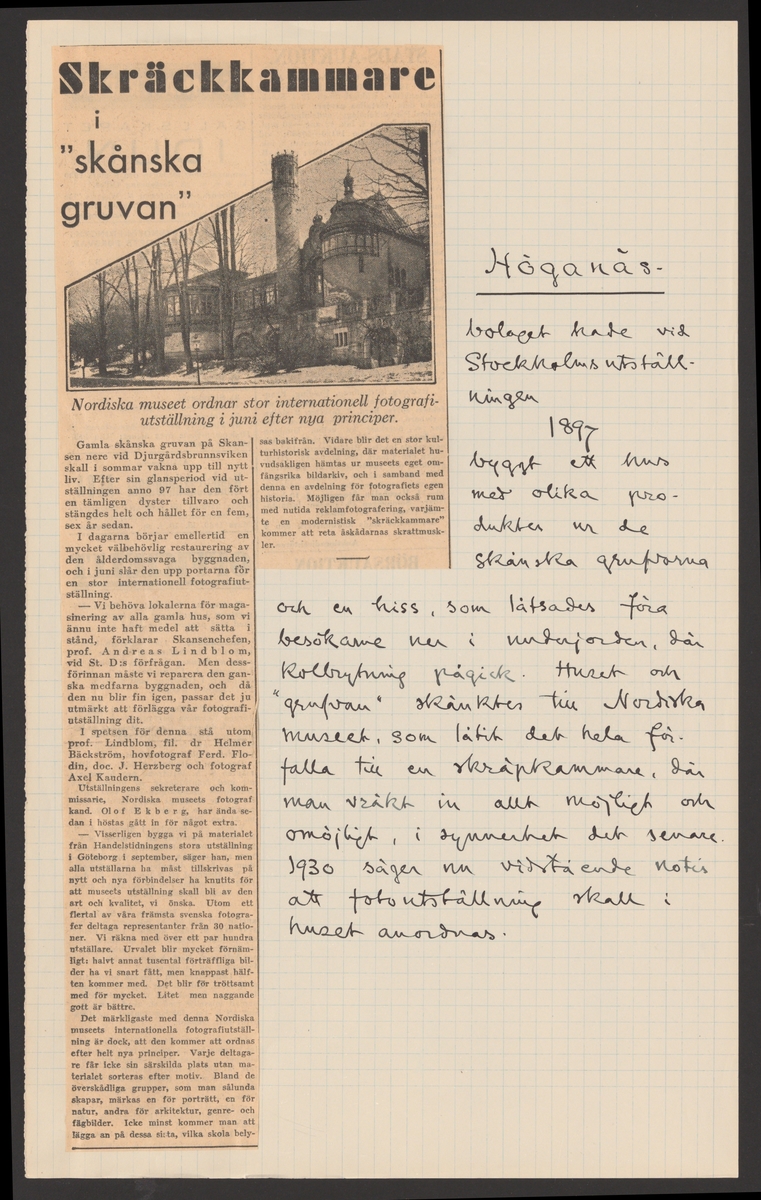 Skräckkammare
i
"skånska
gruvan"
Nordiska museet ordnar stor internationell fotografi-
utställning i juni efter nya principer.
Gamla skånska gruvan på Skan-
sen nere vid Djurgårdsbrunnsviken
skall i sommar vakna upp till nytt
liv. Efter sin glansperiod vid ut-
ställningen anno 97 har den fört
en tämligen dyster tillvaro och
stängdes helt och hållet för en fem,
sex år sedan.
I dagarna börjar emellertid en
mycket välbehövlig restaurering av
den ålderdomssvaga byggnaden,
och i juni slår den upp portarna för
en stor internationell fotografiut-
ställning.
— Vi behöva lokalerna för maga-
sinering av alla gamla hus, som vi
ännu inte haft medel att sätta i
stånd, förklarar Skansenchefen,
prof. Andreas Lindblom,
vid St. D:s förfrågan. Men dess-
förinnan måste vi reparera den gan-
ska medfarna byggnaden, och då
den nu blir fin igen, passar det ju
utmärkt att förlägga vår fotografi-
utställning dit.
I spetsen för denna stå utom
prof. Lindblom, fil. dr Helmer
Bäckström, hovfotograf Ferd. Flo-
din, doc. J. Herzberg och fotograf
Axel Kaudern.
Utställningens sekreterare och kom-
missarie, Nordiska museets fotograf
kand. Olof Ekberg, har ända se-
dan i höstas gått in för något extra.
— Visserligen bygga vi på materialet
från Handelstidningens stora utställning
i Göteborg i september, säger han, men
alla utställarna ha måst tillskrivas på
nytt och nya förbindelser ha knutits för
att museets utställning skall bli av den
art och kvalitet, vi önska. Utom ett
flertal av våra främsta svenska fotogra-
fer deltaga representanter från 30 natio-
ner. Vi räkna med över ett par hundra
utställare. Urvalet blir mycket förnäm-
ligt: halvt annat tusental förträffliga bil-
der ha vi snart fått, men knappast hälf-
ten kommer med. Det blir för tröttsamt
med för mycket. Litet men naggande
gott är bättre.
Det märkligaste med denna Nordiska
museets internationella fotografiutställ-
ning är dock, att den kommer att ordnas
efter helt nya principer. Varje deltaga-
re får icke sin särskilda plats utan ma-
terialet sorteras efter motiv. Bland de
överskådliga grupper, som man sålunda
skapar, märkas en för porträtt, en för
natur, andra för arkitektur, genre- och
fågbilder. Icke minst kommer man att
lägga an på dessa sista, vilka skola bely-
sas bakifrån. Vidare blir det en stor kul-
turhistorisk avdelning, där materialet hu-
vudsakligen hämtas ur museets eget om-
fångsrika bildarkiv, och i samband med
denna en avdelning för fotografiets egen
historia. Möjligen får man också rum
med nutida reklamfotografering, varjäm-
te en modernistisk "skräckkammare"
kommer att reta åskådarnas skrattmusk-
ler.
Höganäs-
bolaget hade vid
Stockholmsutställ-
ningen
1897
byggt ett hus
med olika pro-
dukter ur de
skånska grufvorna
och en hiss, som låtsades föra
besökarne ner i underjorden, där
kolbrytning pågick. Huset och
"grufvan" skänktes till Nordiska
museet, som låtit det hela för-
falla till en skräpkammare, där
man vräkt in allt möjligt och
omöjligt, i synnerhet det senare.
1930 säger nu vidstående notis
att fotoutställning skall i
huset anordnas.